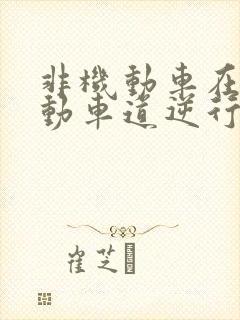 非機動車在
動車道逆行
崔芝